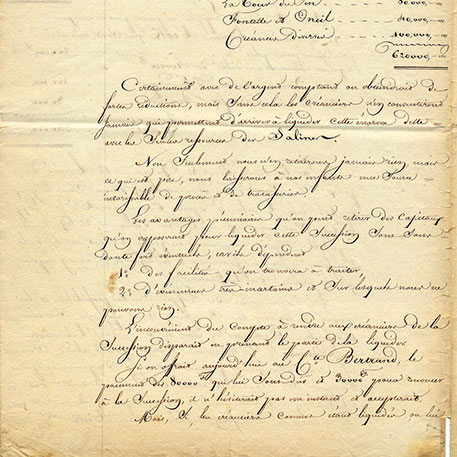 La Tour du Pin - 80,000,-
Fontelle et Oneil 40,000,-
Créances diverses - 100,000,-
620000,-
Certainement avec de l'argent comptant on obtiendrait de
fortes réductions, mais sans cela les créanciers n'en consentiront
jamais qui permettent d'arriver à liquider cette énorme dette
avec les seules ressources des Salines.
Non seulement nous n'en retirerons jamais rien, mais
ce qui est pire, nous laisserons à nos enfants une source
intarissable de procès et de tracasseries.
Les avantages pécuniaires qu'on peut retirer des Capitaux
qu'on apporterait pour liquider cette Succession sont sans
doute fort éventuels, car ils dépendent
1° des facilités qu'on trouvera à traiter,
2° d'évènemens très-incertains et sur lesquels nous ne
pouvons rien.
L'inconvénient du Compte à rendre aux créanciers de la
Succession disparait en prenant le parti de la liquider
Si on offrait aujourd'hui au Cte Bertrand, le
paiement des 80000 qui lui sont dûs et 30000 pour renoncer
à la Succession, il n'hésiterait pas un instant et accepterait.
Mais, si les créanciers comme étant liquidés ou lui